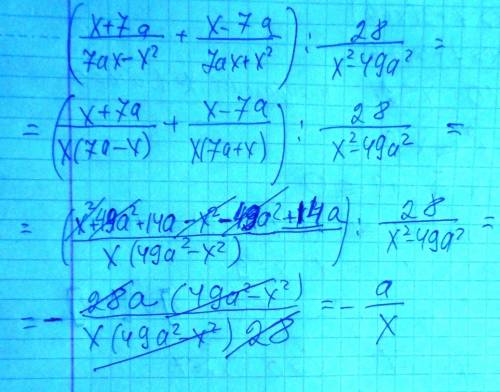 ((x+7a)/(7ax-x²) + (x-7a)/(7ax+x²)) : 28/(x²-49a²) =
= ((x+7a)/(x(7a-x)) + (x-7a)/(x(7a+x))) : 28/(x²-49a²) =
= ((x²+49a²+14a-x²-49a²+14a)/(x(49a²-x²))) : 28/(x²-49a²) =
= - (28a (49a²-x²))/(x(49a²-x²) 28) = - a/x